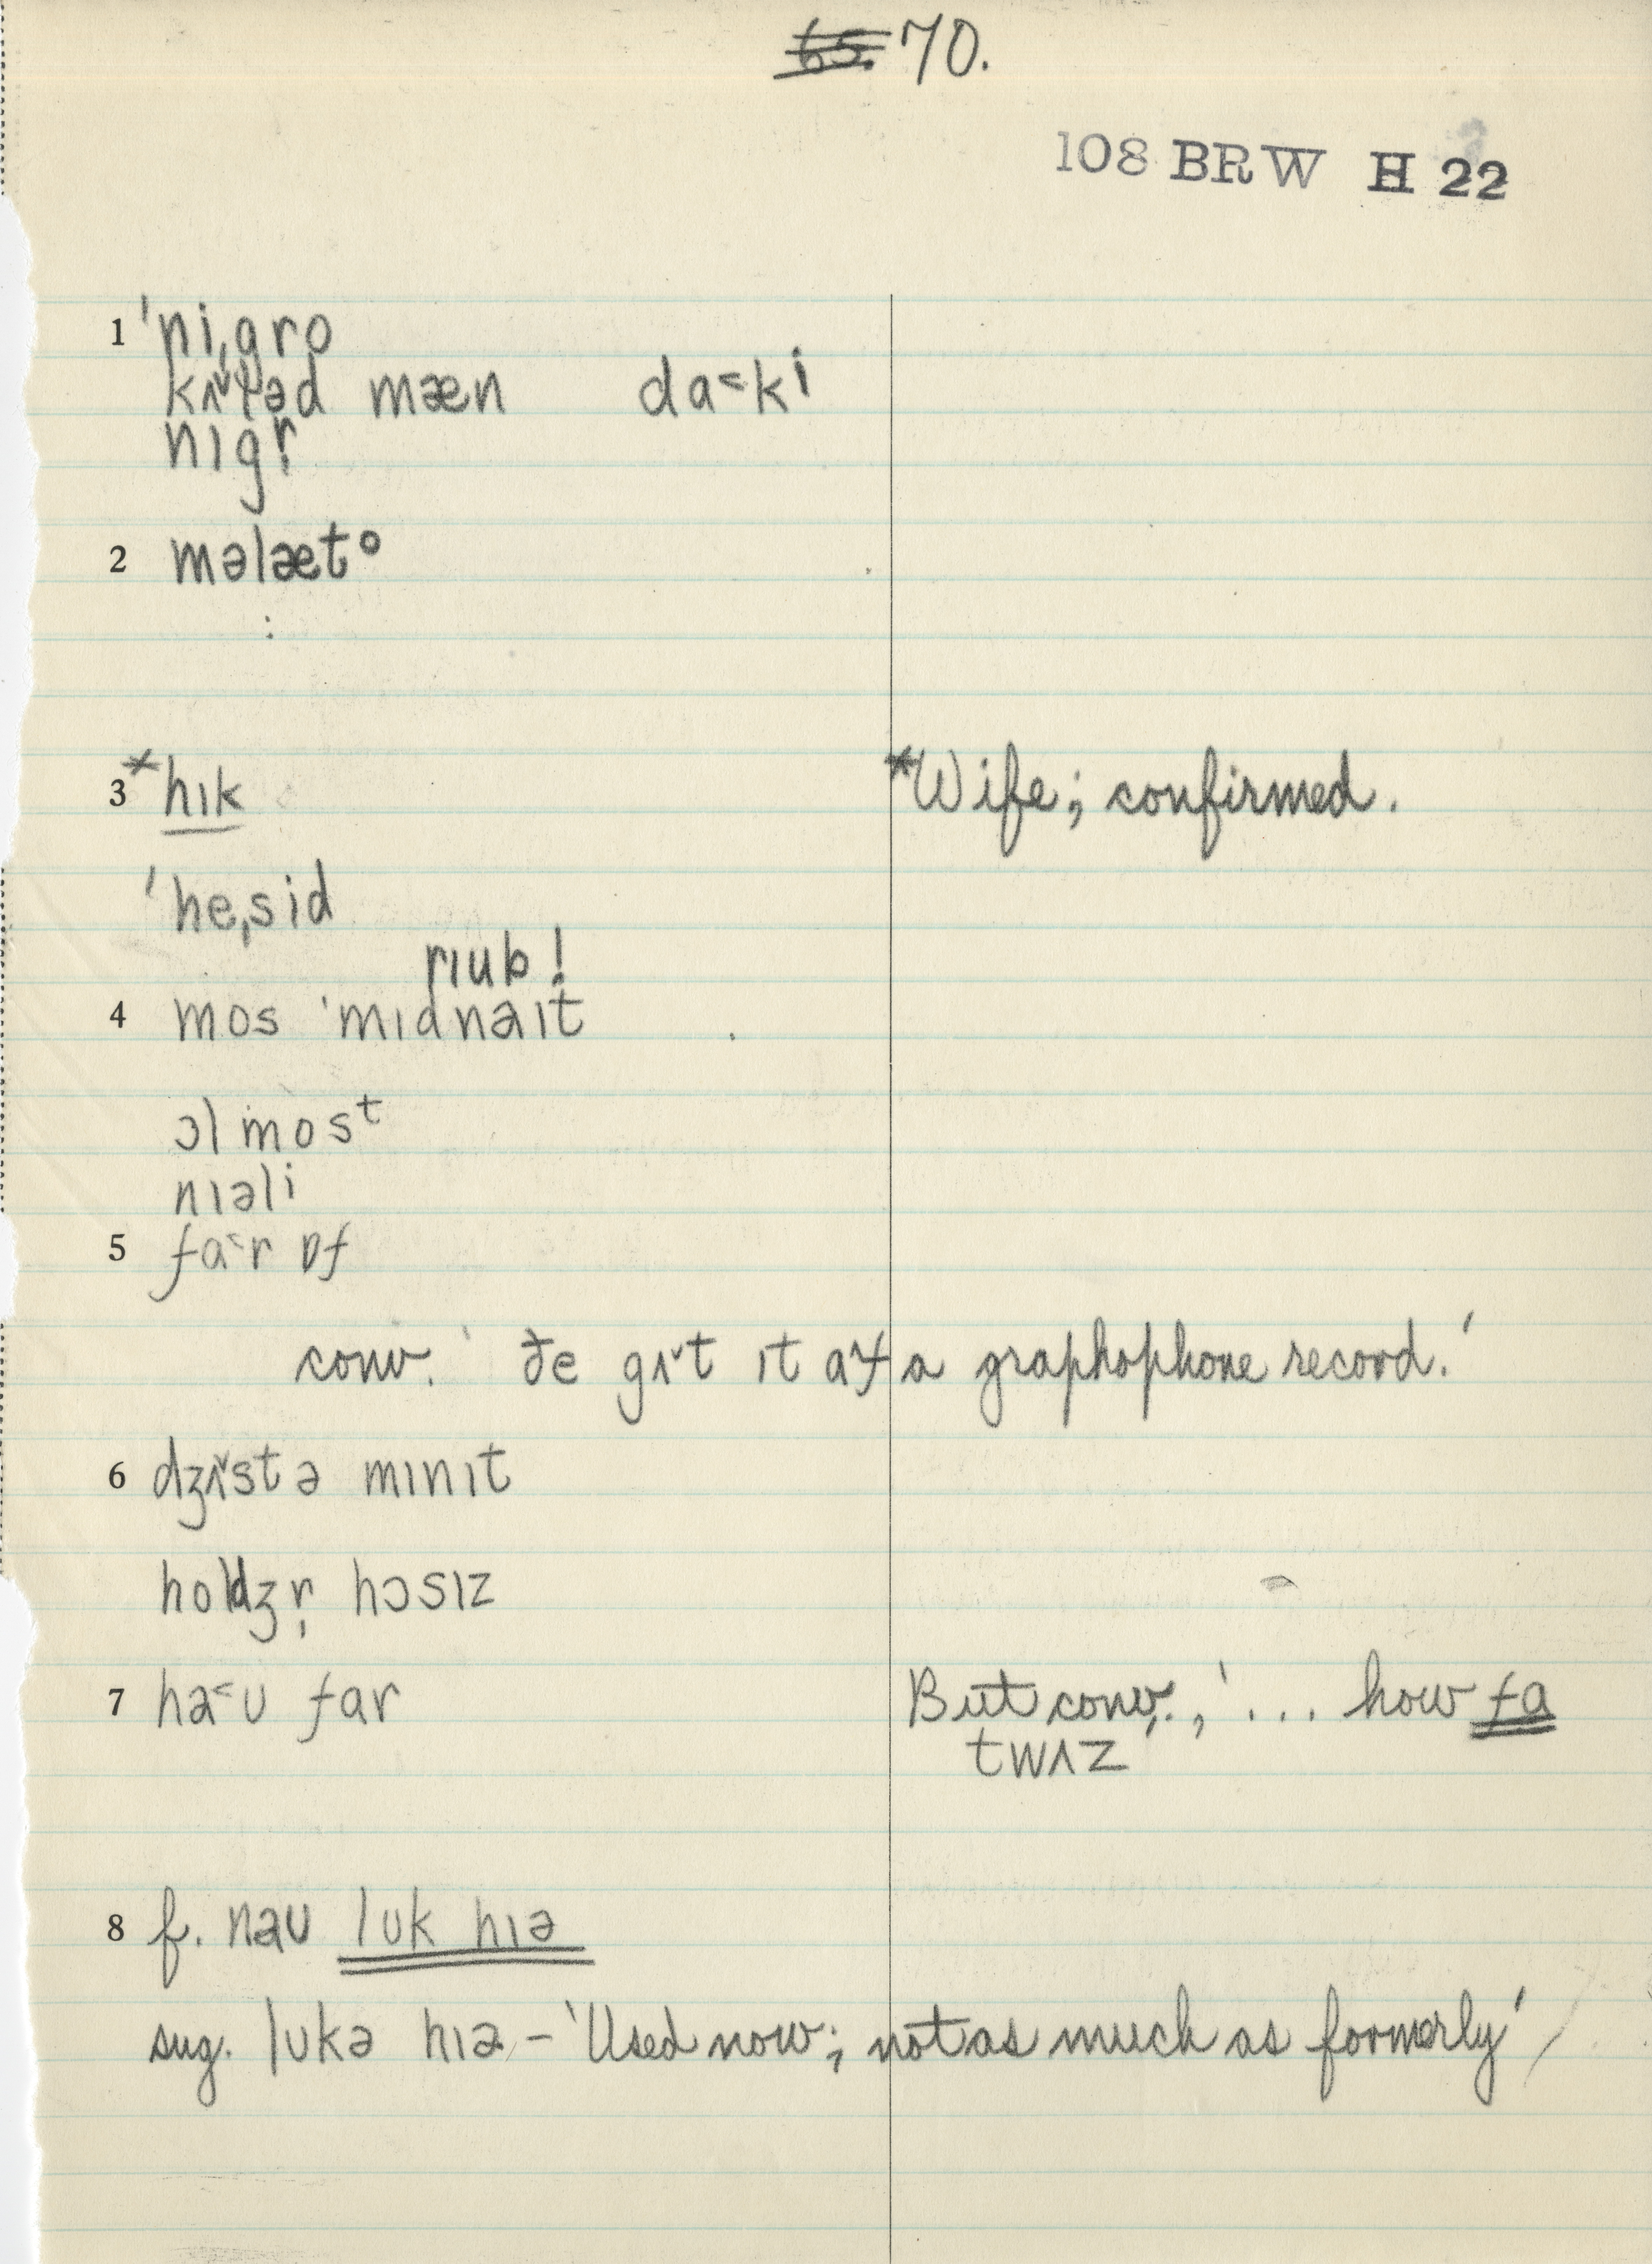 65. 70.
108 BRW H 22
1 ˈniˌgro
kʌ˅ləd mæn da˂ki
nɪgr̩
2 məlætᵒ
3 *hɪk *Wife; confirmed.
ˈheˌsid
rɪub!
4 mos ˈmɪdnaɪt
ɔl mosᵗ
nɪəli
5 fa˂r ɒf
conv. ' ðe gʌ˅t ɪt a graphophone record.'
6 dʒʌ˅st ə mɪnɪt
holdʒr̩ hɔsɪz
7 ha˂ʊ far But conv., '... how fa
twʌz
8 f. naʊ lʊk hɪə
sug. lʊkə hɪə – 'Used now; not as much as formerly'